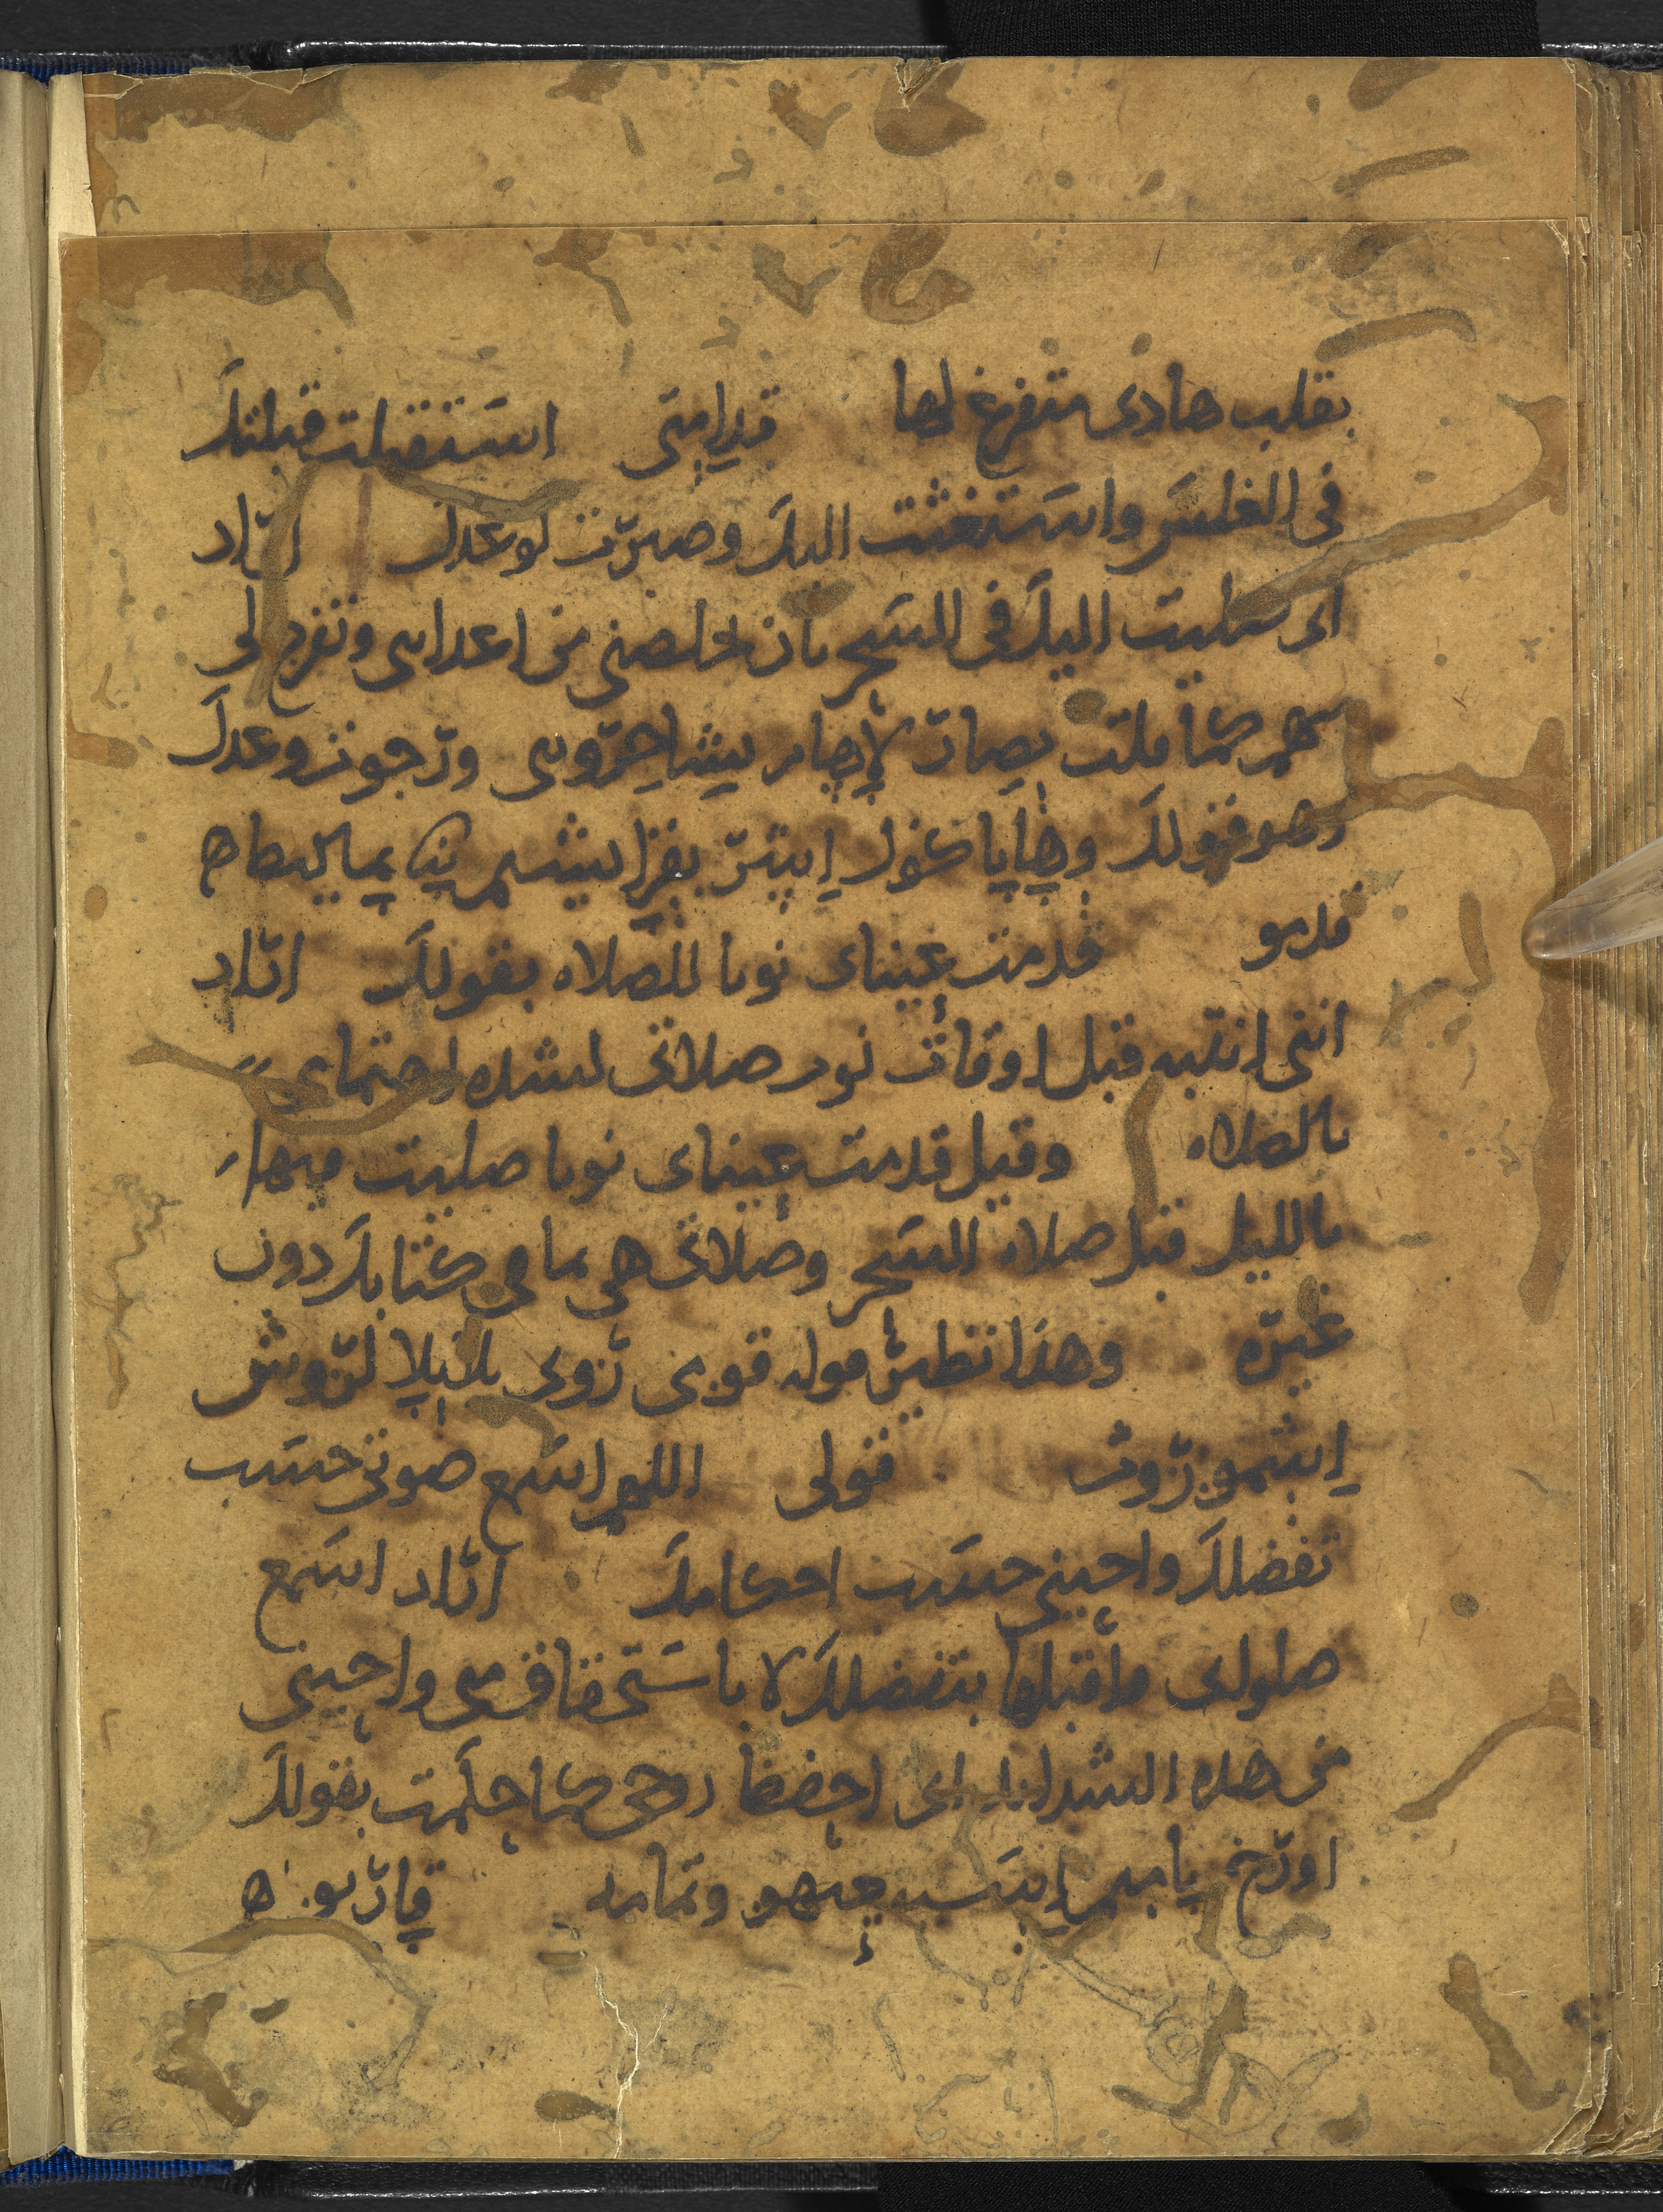 بقلب هادى متفرغ لها قدامتى استقبلت قبلتك
فى الغلس واستغثت اليك وصبرت لوعدك اراد
اى صليت اليك فى السحر بان تخلصنى من اعداى وتفرج لى
كما قلت بصار لاهام يشاحروى ورجوت وعدك
وهو قولك وهايا كول ايشر يقرا بيشم يى يماليط اه
قدمو قدمت عيناى نوبا للصلاه بقولك اراد
اننى انتبه قبل اوقات نور صلاتى لشده اهتمامى
بالصلاه وقيل قدمت عيناى نوبا صليت فيها
بالليل قبل صلاه السحر وصلاتى هى بما فى كتابك دون
غيره وهذا نظير قوله قومى رونى بلايلا لروش
اشموروث قولى اللهم اسمع صوتى حسب
تفضلك واحينى حسب احكامك اراد اسمع
صلولى واقبلها بتفضلك لا باستحقاق منى واحينى
من هذه الشدايد اى احفظ روحى كما حكمت بقولك
اورخ ياميم ايبسميهو وتمامه قاربو ه